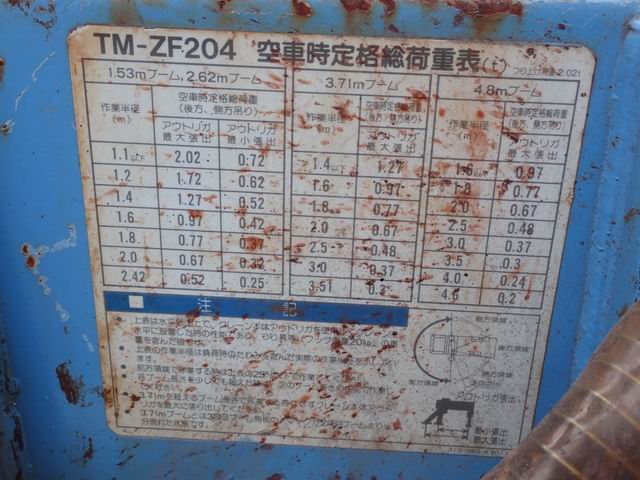 TM-ZF204 空車時定格総荷重表(t) つり上げ荷重2.02t
1.53mブーム,2.62mブーム
作業半径(m) 空車時定格総荷重(後方、側方吊り)
アウトリガ最大張出 アウトリガ最小張出
1.1以下 2.02 0.72
1.2 1.72 0.62
1.4 1.27 0.52
1.6 0.97 0.42
1.8 0.77 0.37
2.0 0.67 0.32
2.42 0.52 0.25
3.71mブーム
作業半径(m) 空車時定格総荷重(後方、側方吊り)
アウトリガ最大張出
1.4以下 1.27
1.6 0.97
1.8 0.77
2.0 0.67
2.5 0.48
3.0 0.37
3.51 0.3
4.8mブーム
作業半径(m) 空車時定格総荷重(後方、側方吊り)
アウトリガ最大張出
1.6以下 0.97
1.8 0.77
2.0 0.67
2.5 0.48
3.0 0.37
3.5 0.3
4.0 0.24
4.6 0.2
注 記
上表は水平堅土上で、クレーン本体アウトリガを使用
水平に設置した時の性能であり、つり具フック質量20kg
量を含んだ値です。
上表の作業半径は負荷時のたわみを含んだ実際の作業半径
前方領域で作業する時は上表の25%以下で作業してください。
各ブーム長さを少しでも超えた
ください。
3.71mを超えるブーム長さで
ガを最大に張り出してください。
3.71mブームとは
分現れた状態です。
側方領域
後方領域
前方領域
アウトリガ張出
最小張出
最大張出